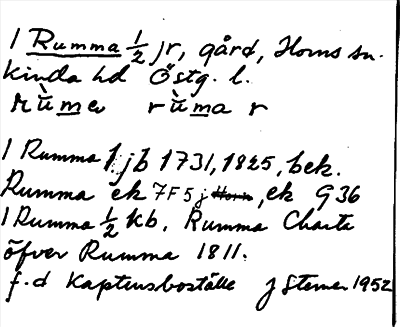 1 Rumma 1/2 jr, gård, Horns sn.
Kinda hd Östg. l.
rùme rùma r
1 Rumma 1 jb 1731, 1825, bek.
Rumma ek 7F5j, ek G36
1 Rumma 1/2 Kb. Rumma Charta
öfver Rumma 1811.
f.d Kaptensboställe J Stemer 1952